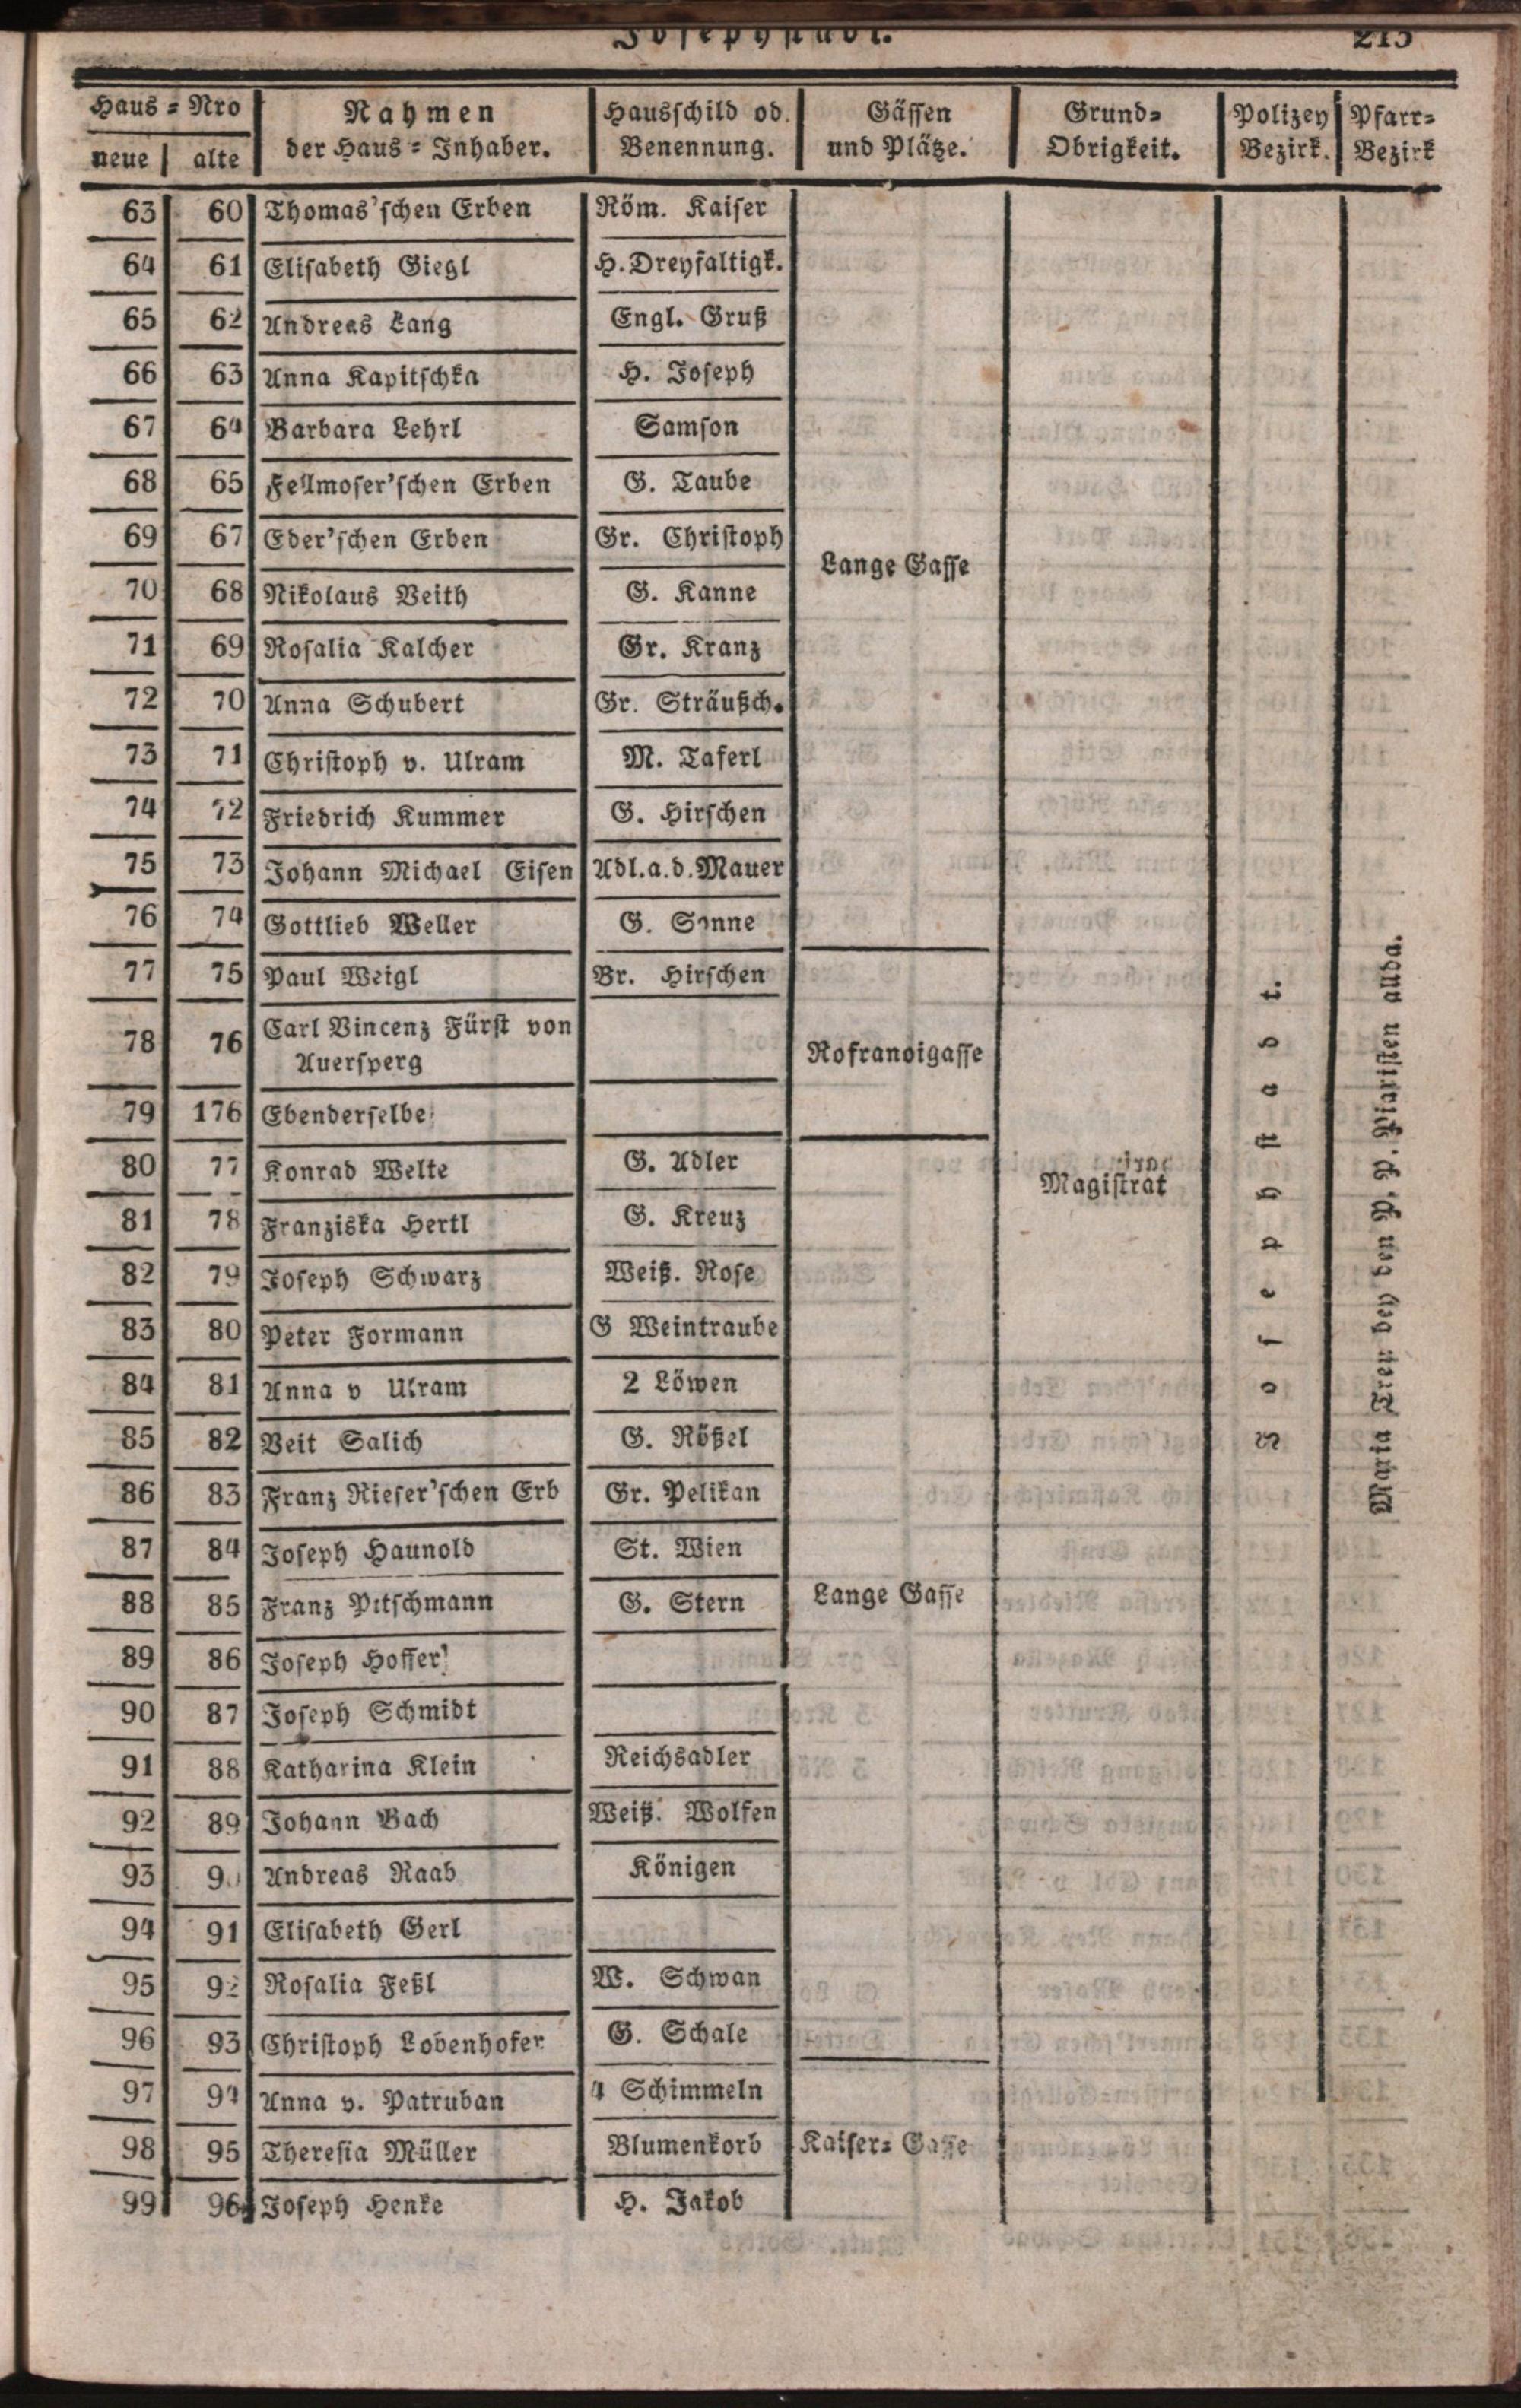 Josephstadt. 215
Haus=Nro Nahmen der Haus=Inhaber. Hausschild od. Benennung. Gässen und Plätze. Grund=Obrigkeit. Polizey Bezirk. Pfarr=Bezirk
neue alte
63 60 Thomas'schen Erben Röm. Kaiser
64 61 Elisabeth Giegl H. Dreyfaltigk.
65 62 Andreas Lang Engl. Gruß
66 63 Anna Kapitschka H. Joseph
67 64 Barbara Lehrl Samson
68 65 Fellmoser'schen Erben G. Taube
69 67 Eder'schen Erben Gr. Christoph
Lange Gasse
70 68 Nikolaus Veith G. Kanne
71 69 Rosalia Kalcher Gr. Kranz
72 70 Anna Schubert Gr. Sträußch.
73 71 Christoph v. Ulram M. Taferl
74 72 Friedrich Kummer G. Hirschen
75 73 Johann Michael Eisen Adl. a. d. Mauer
76 74 Gottlieb Weller G. Sonne
77 75 Paul Weigl Br. Hirschen
78 76 Carl Vincenz Fürst von
Auersperg
Rofranoigasse
79 176 Ebenderselbe
80 77 Konrad Welte G. Adler
Magistrat
81 78 Franziska Hertl G. Kreuz
82 79 Joseph Schwarz Weiß. Rose
83 80 Peter Formann G Weintraube
84 81 Anna v Ulram 2 Löwen
85 82 Veit Salich G. Rößel
Josephstadt.
Maria Treu bey den P. P. Piaristen allda.
86 83 Franz Rieser'schen Erb Gr. Pelikan
87 84 Joseph Haunold St. Wien
88 85 Franz Pitschmann G. Stern
Lange Gasse
89 86 Joseph Hoffer
90 87 Joseph Schmidt
91 88 Katharina Klein Reichsadler
92 89 Johann Bach Weiß. Wolfen
93 90 Andreas Raab Königen
94 91 Elisabeth Gerl
95 92 Rosalia Feßl W. Schwan
96 93 Christoph Lobenhofer G. Schale
97 94 Anna v. Patruban 4 Schimmeln
98 95 Theresia Müller Blumenkorb Kaiser=Gasse
99 96 Joseph Henke H. Jakob